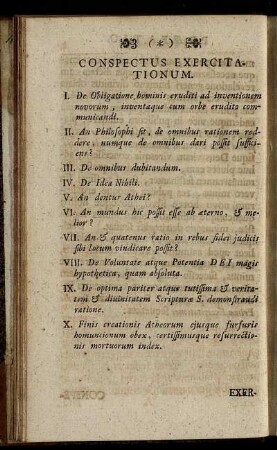 (*)
CONSPECTUS EXERCITA-
TIONUM.
I. De Obligatione hominis eruditi ad inventionem
novorum, inventaque cum orbe erudito com-
municandi.
II. An Philosophi sit, de omnibus rationem red-
dere, numque de omnibus dari possit suffici-
ens?
III. De omnibus dubitandum.
IV. De Idea Nihili.
V. An dentur Athei?
VI. An mundus hic possit esse ab æterno, & me-
lior?
VII. An & quatenus ratio in rebus fidei judicis
sibi locum vindicare possit?
VIII. De Voluntate atque Potentia DEI magis
hypothetica, quam absoluta.
IX. De optima pariter atque tutissima & verita-
tem & divinitatem Scripturæ S. demonstrandi
ratione.
X. Finis creationis Atheorum ejusque furfuris
homuncionum obex, certissimusque resurrectio-
nis mortuorum index.
EXER-